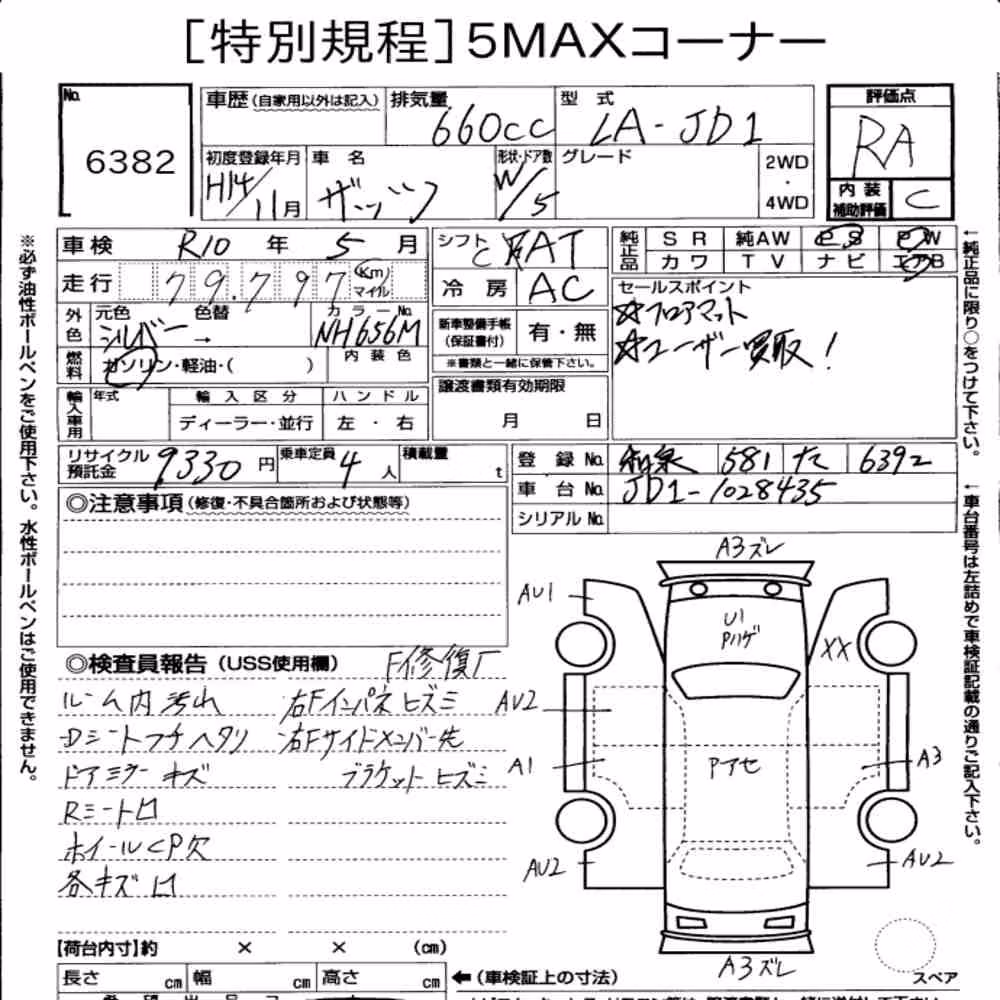 [特別規程]5MAXコーナー
No. 6382
車歴(自家用以外は記入) 排気量 660cc 型式 LA-JD1
評価点 RA
初度登録年月 H14/11月 車名 ザッツ 形状・ドア数 W/5 グレード 2WD・4WD
内装補助評価 C
車検 R10年5月 シフト AT
純正品 SR 純AW PS PW
カワ TV ナビ エアB
走行 79,797 Km マイル 冷房 AC
セールスポイント
☆フロアマット
☆ユーザー買取!
外色 元色 シルバー 色替 → カラーNo. NH656M
新車整備手帳(保証書付) 有・無
※書類と一緒に保管下さい。
燃料 ガソリン・軽油・( ) 内装色
譲渡書類有効期限 月 日
輸入車用 年式 輸入区分 ハンドル
ディーラー・並行 左・右
リサイクル預託金 9330円 乗車定員 4人 積載量 t
登録No. 和泉 581 た 6392
車台No. JD1-1028435
シリアルNo.
◎注意事項(修復・不具合箇所および状態等)
◎検査員報告(USS使用欄) F修復厂
ルーム内汚れ 右Fインパネヒズミ
Dシートフチヘタリ 右Fサイドメンバー先
ドアミラーキズ ブラケットヒズミ
ホイールCP欠
各キズ
A3ズレ
AU1
U1
Pハゲ
XX
AU2
A1
Pアセ
A3
AU2
AU2
A3ズレ
スペア
【荷台内寸】約 × × (cm)
長さ cm 幅 cm 高さ cm ←(車検証上の寸法)
※必ず油性ボールペンをご使用下さい。水性ボールペンはご使用できません。
←純正品に限り○をつけて下さい。
←車台番号は左詰めで車検証記載の通りご記入下さい。